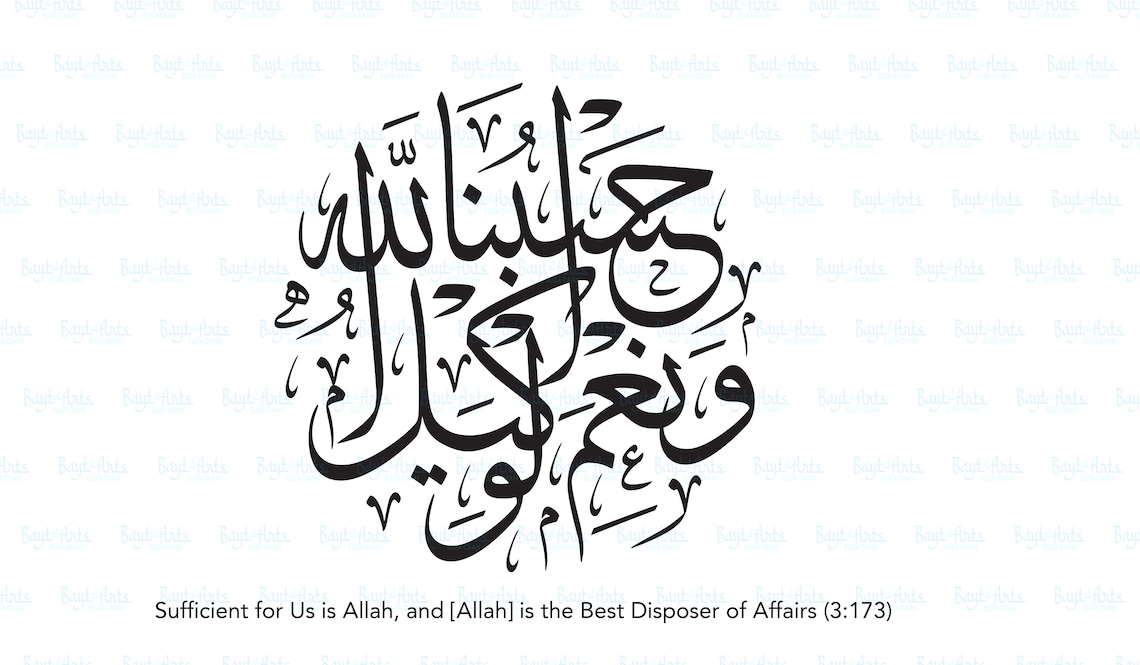 حَسْبُنَا اللَّهُ وَنِعْمَ الْوَكِيلُ
Sufficient for Us is Allah, and [Allah] is the Best Disposer of Affairs (3:173)